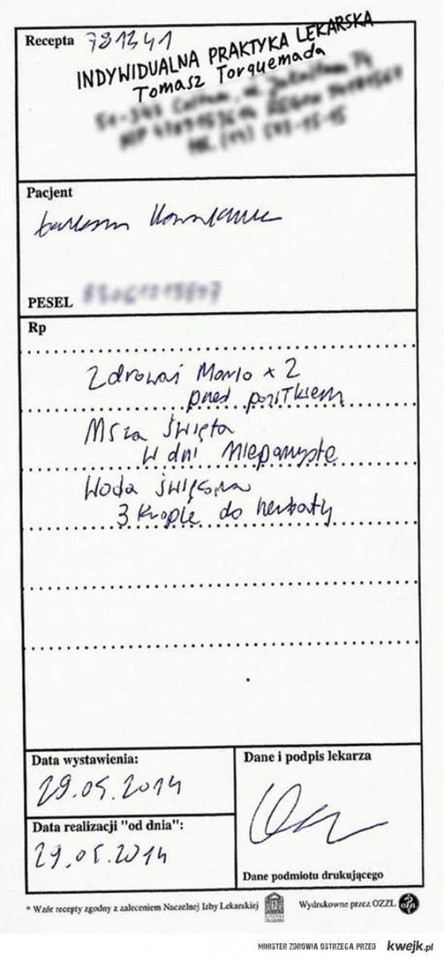 Recepta 791341
INDYWIDUALNA PRAKTYKA LEKARSKA
Tomasz Torquemada
Pacjent
PESEL
Rp
Zdrowaś Mario x 2
przed posiłkiem
Msza święta
w dni nieparzyste
Woda święcona
3 krople do herbaty
Data wystawienia:
29.05.2014
Data realizacji "od dnia":
29.05.2014
Dane i podpis lekarza
Dane podmiotu drukującego
* Wzór recepty zgodny z zaleceniem Naczelnej Izby Lekarskiej
Wydrukowne przez OZZL
MINISTER ZDROWIA OSTRZEGA PRZED kwejk.pl